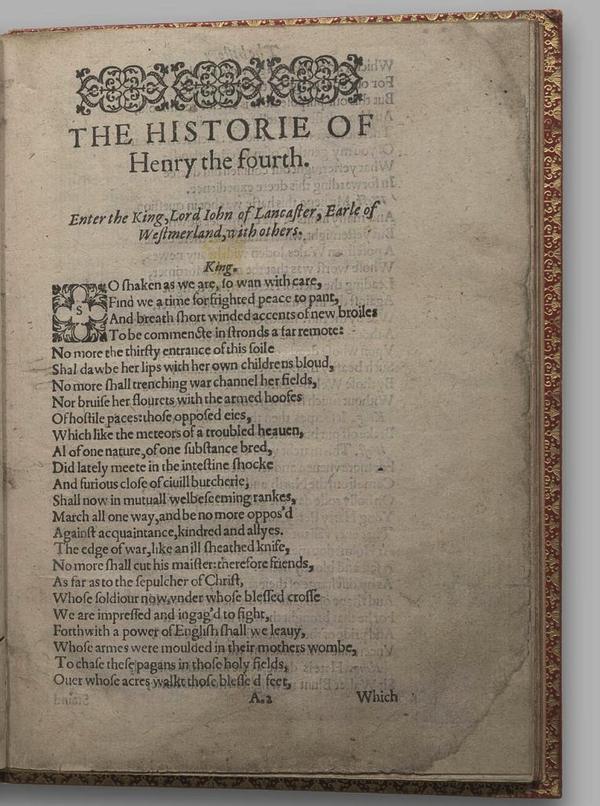 THE HISTORIE OF
Henry the fourth.
Enter the King, Lord Iohn of Lancaſter, Earle of
Weſtmerland, with others.
King.
SO ſhaken as we are, ſo wan with care,
Find we a time for frighted peace to pant,
And breath ſhort winded accents of new broiles
To be commencte in ſtronds a far remote:
No more the thirſty entrance of this ſoile
Shal dawbe her lips with her own childrens bloud,
No more ſhall trenching war channel her fields,
Nor bruiſe her flourets with the armed hoofes
Of hoſtile paces: thoſe oppoſed eies,
Which like the meteors of a troubled heauen,
Al of one nature, of one ſubſtance bred,
Did lately meete in the inteſtine ſhocke
And furious cloſe of ciuill butcherie,
Shall now in mutuall welbeſeeming rankes,
March all one way, and be no more oppos'd
Againſt acquaintance, kindred and allyes.
The edge of war, like an ill ſheathed knife,
No more ſhall cut his maiſter: therefore friends,
As far as to the ſepulcher of Chriſt,
Whoſe ſoldiour now vnder whoſe bleſſed croſſe
We are impreſſed and ingag'd to fight,
Forthwith a power of Engliſh ſhall we leauy,
Whoſe armes were moulded in their mothers wombe,
To chaſe theſe pagans in thoſe holy fields,
Ouer whoſe acres walkt thoſe bleſſed feet,
A.2 Which